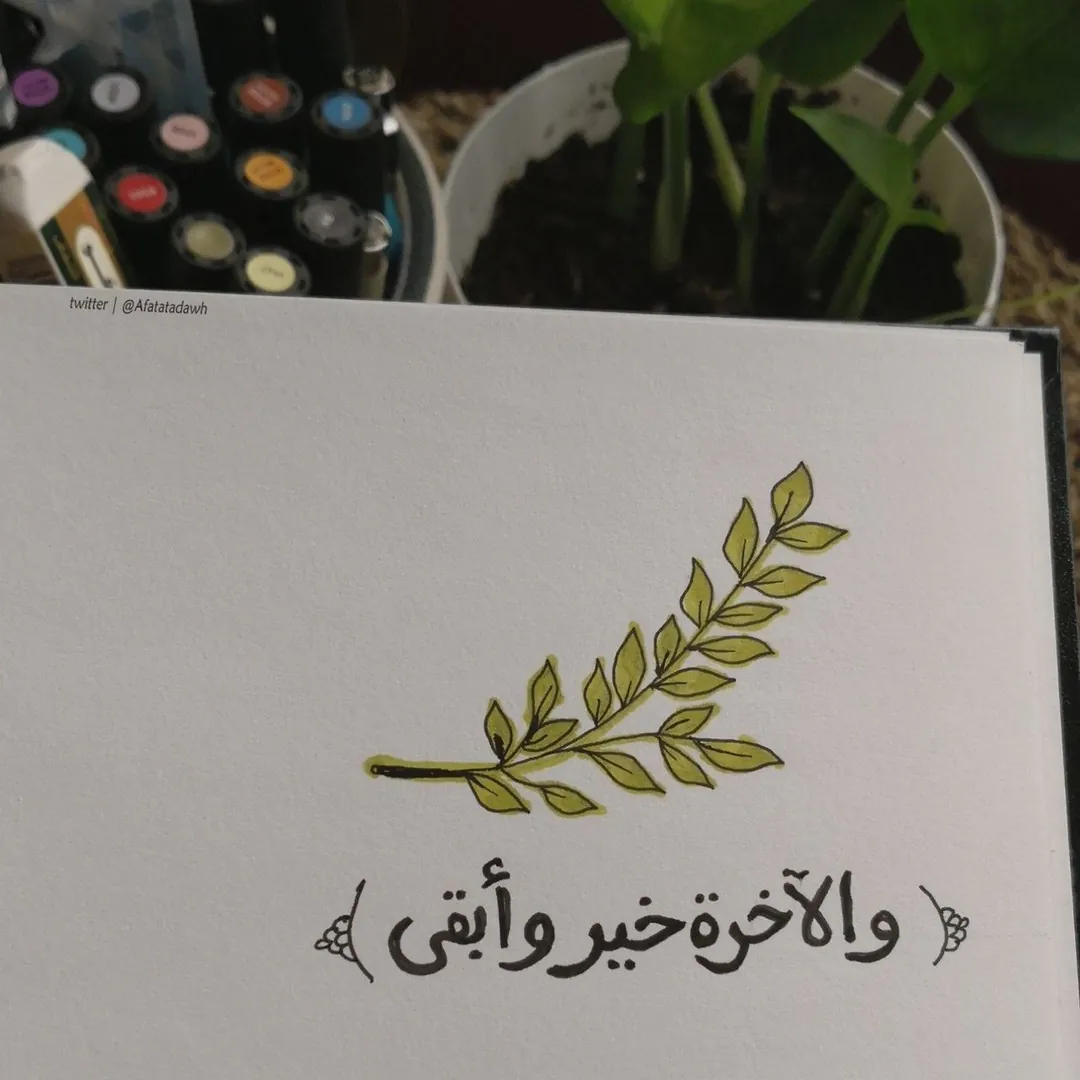 twitter | @Afatatadawh
﴿والآخرة خير وأبقى﴾